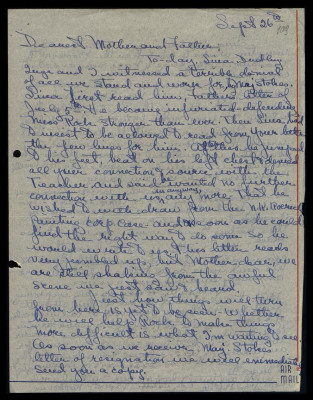 Sept 26th
Dearest Mother and Father,
To-day, Lina, Dudley
Inge and I witnessed a terrible denial
of all we stand and work for by Maj. Stokes.
Lina first read him Father's letter of
July 5th. He became infuriated - defending
Miss Rock stronger than ever. Then Lina had
to insist to be allowed to read from your letter
the few lines for him. At this he jumped
to his feet, beat on his left chest & denied
all your connection & source with the
Teacher and said he wanted no further
connection with us in any way any more & that he
wished to withdraw from the N.K. Roerich
Case and as soon as he could
find the right way to do so he
would write to you his letter reads
very jumbled up, and Mother dear, we
are still shaking from the awful
scene we just saw & heard.
Just how things will turn
from here is yet to be seen. Whether
he will help Rock to make things
more difficult is what I'm waiting to see.
As soon as we receive Maj. Stokes
letter of resignation we will immediately
send you a copy.
AIR
MAIL